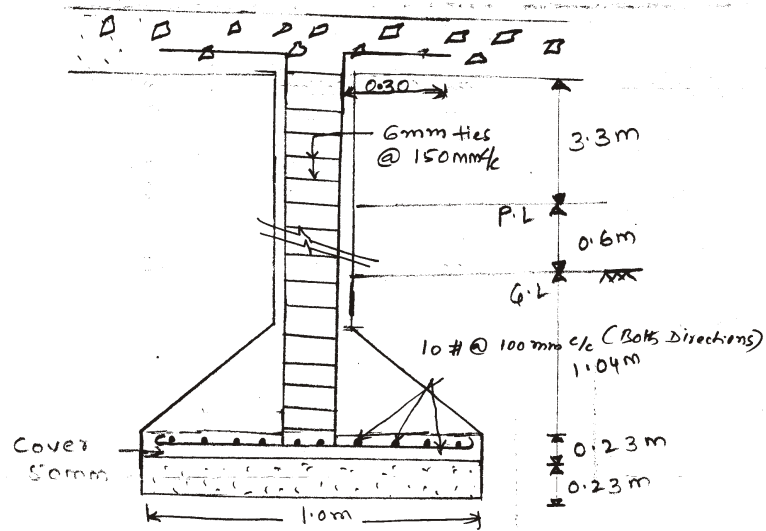 0.30
6mm ties
@ 150mm c/c
3.3m
P.L
0.6m
G.L
10 # @ 100mm c/c (Both Directions)
1.04m
Cover
50mm
0.23m
0.23m
1.0m